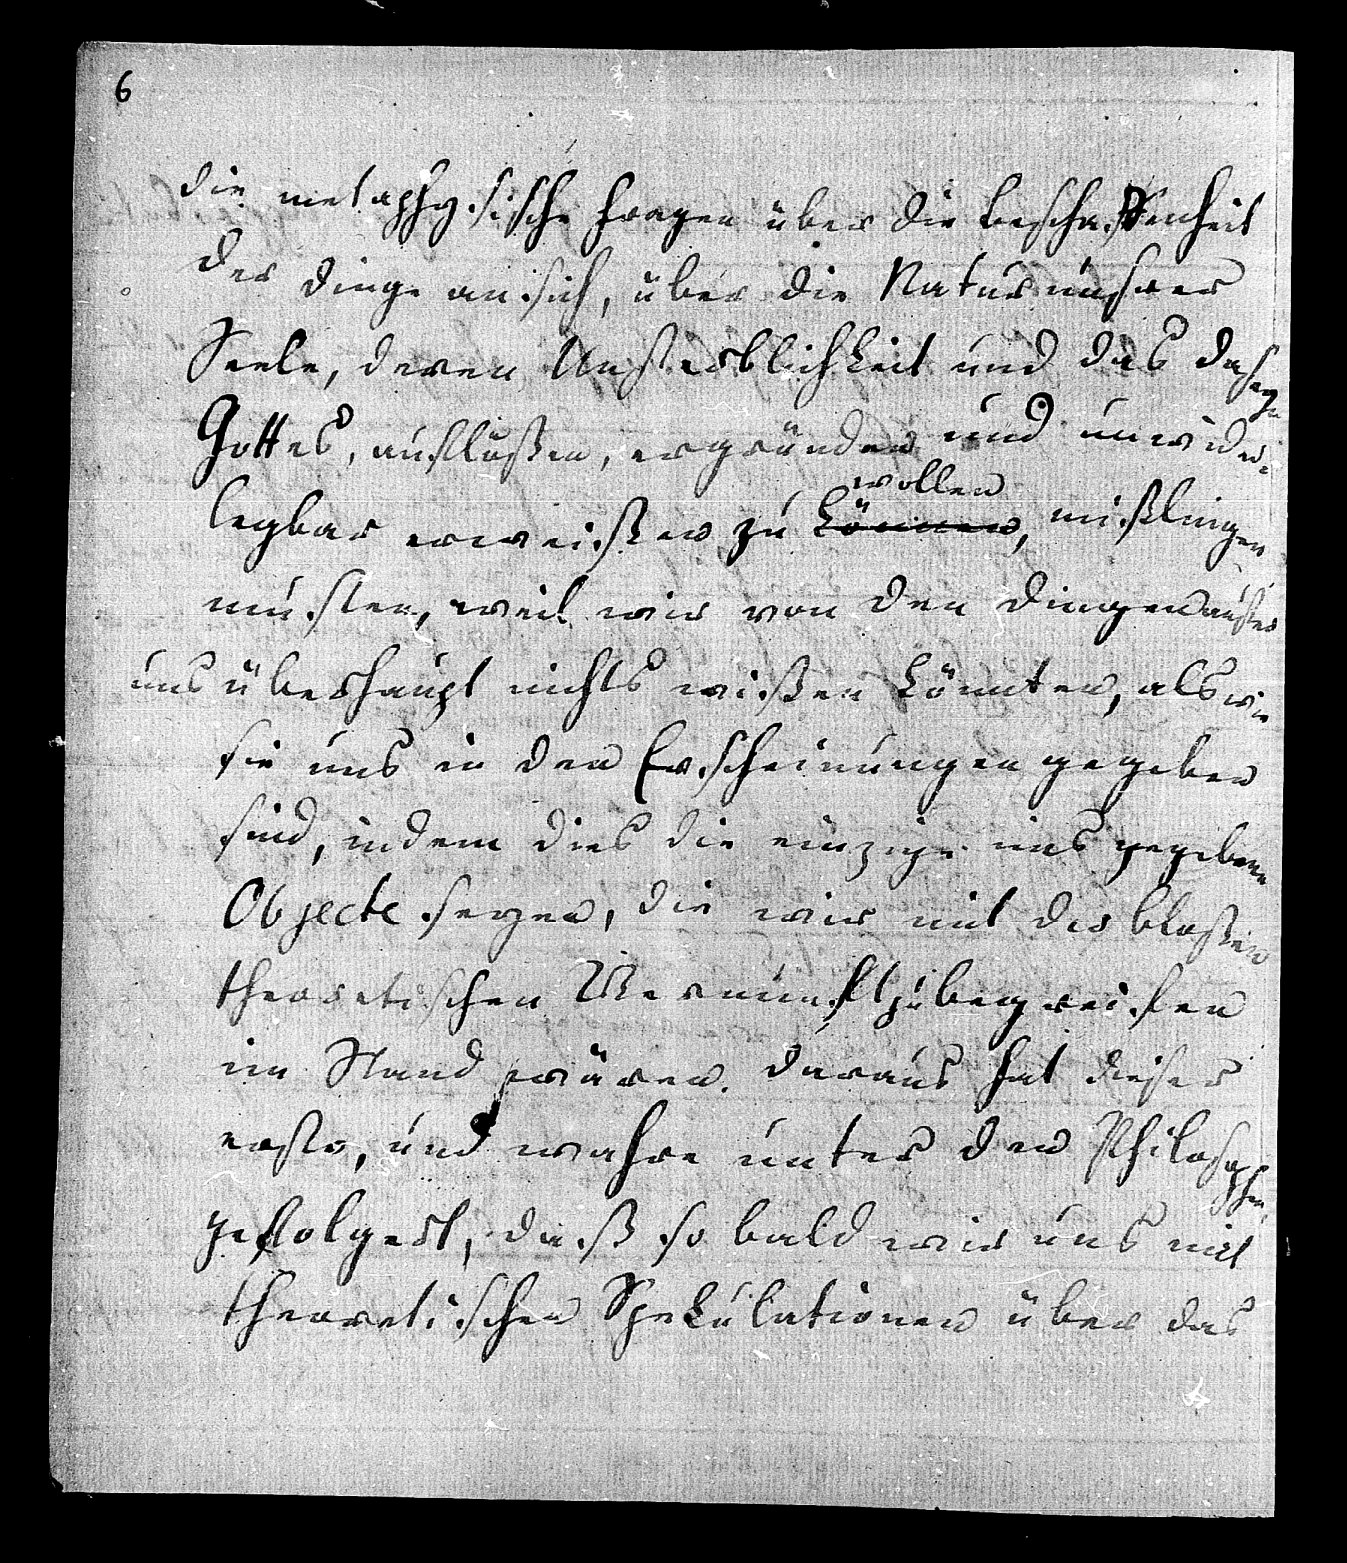 6
die metaphysische fragen über die beschaffenheit
der dinge an sich, über die Natur unserer
Seele, deren Unsterblichkeit und das daseyn
Gottes, auflößen, ergründen und unwider-
wollen
legbar erweißen zu können, mißlingen
musten, weil wir von den dingen außer
uns überhaupt nichts wißen könnten, als wie
sie uns in den Erscheinungen gegeben
sind, indem dies die einzige uns gegebene
Objecte seyen, die wir mit der bloßen
theoretischen Vernunft zu begreifen
im Stand wären. daraus hat dieser
erste, und wahre unter den Philosophen,
gefolgert, daß so bald wir uns mit
theoretischen Spekulationen über das